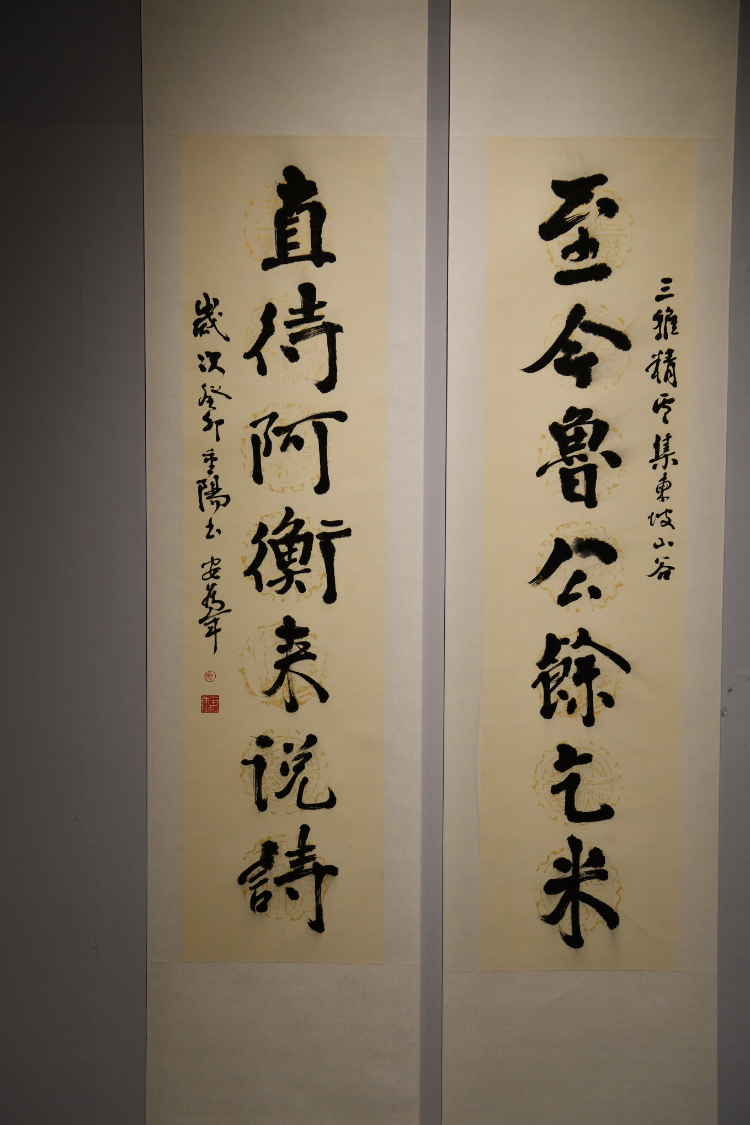 三雅精舍集東坡山谷
至今魯公餘乞米
直待阿衡来说詩
歲次癸卯重陽書 安